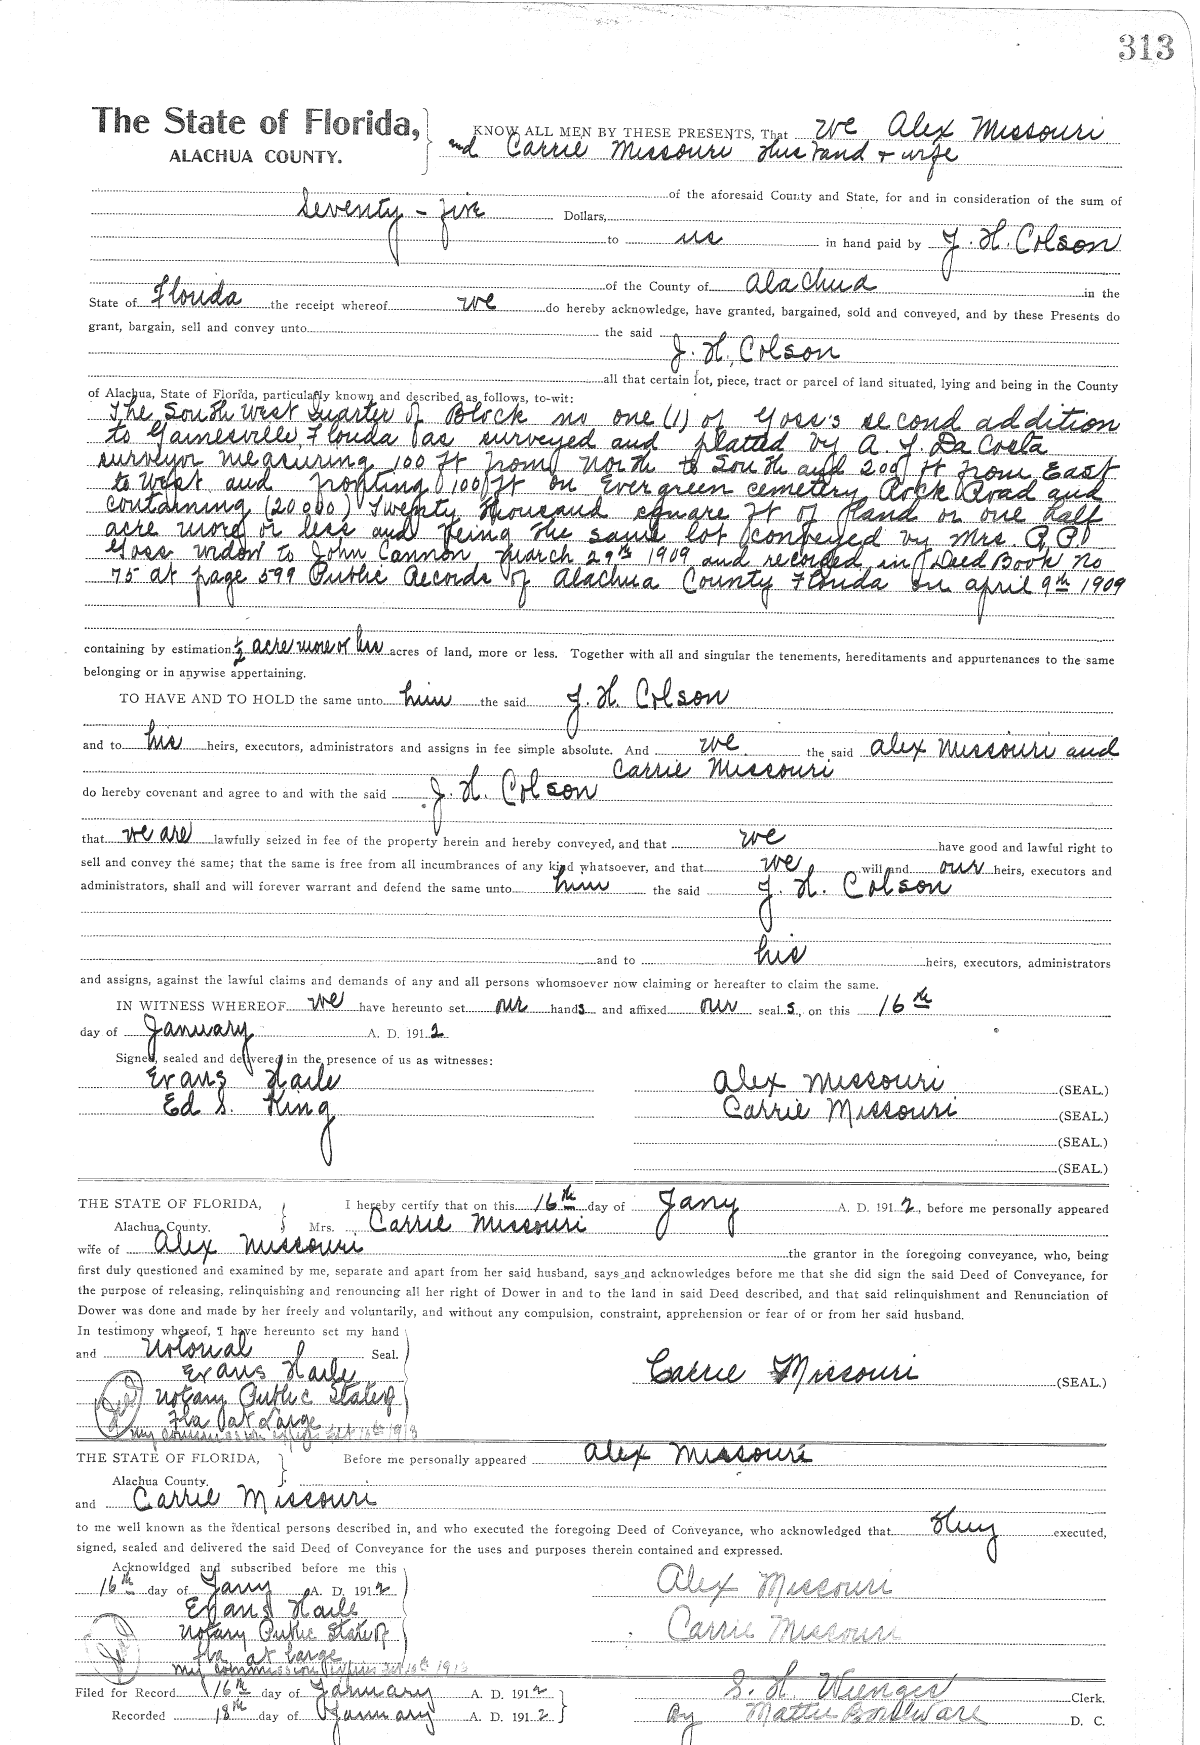 313
The State of Florida,
ALACHUA COUNTY.
KNOW ALL MEN BY THESE PRESENTS, That we Alex Missouri
and Carrie Missouri Husband + wife
of the aforesaid County and State, for and in consideration of the sum of
Seventy-five Dollars,
to us in hand paid by J. H. Colson
of the County of Alachua in the
State of Florida the receipt whereof we do hereby acknowledge, have granted, bargained, sold and conveyed, and by these Presents do
grant, bargain, sell and convey unto the said
J. H. Colson
all that certain lot, piece, tract or parcel of land situated, lying and being in the County
of Alachua, State of Florida, particularly known and described as follows, to-wit:
The South West Quarter of Block no one (1) of Goss's second addition
to Gainesville, Florida as surveyed and platted by A. J. Da Costa
surveyor measuring 100 ft from North to South and 200 ft from East
to West and fronting 100 ft on Evergreen cemetery Rock Road and
containing (20000) Twenty thousand square ft of land or one half
acre more or less and being the same lot conveyed by Mrs. P. P.
Goss widow to John Cannon march 29th 1909 and recorded in Deed Book No
75 at page 599 Public Records of Alachua County Florida on april 9th 1909
containing by estimation ½ acre more or less acres of land, more or less. Together with all and singular the tenements, hereditaments and appurtenances to the same
belonging or in anywise appertaining.
TO HAVE AND TO HOLD the same unto him the said J. H. Colson
and to his heirs, executors, administrators and assigns in fee simple absolute. And we the said Alex Missouri and
Carrie Missouri
do hereby covenant and agree to and with the said J. H. Colson
that we are lawfully seized in fee of the property herein and hereby conveyed, and that we have good and lawful right to
sell and convey the same; that the same is free from all incumbrances of any kind whatsoever, and that we will and our heirs, executors and
administrators, shall and will forever warrant and defend the same unto him the said J. H. Colson
and to his heirs, executors, administrators
and assigns, against the lawful claims and demands of any and all persons whomsoever now claiming or hereafter to claim the same.
IN WITNESS WHEREOF we have hereunto set our hands and affixed our seal s, on this 16th
day of January A. D. 1912
Signed, sealed and delivered in the presence of us as witnesses:
Evans Haile Alex Missouri (SEAL.)
Ed S. King Carrie Missouri (SEAL.)
(SEAL.)
(SEAL.)
THE STATE OF FLORIDA, I hereby certify that on this 16th day of Jany A. D. 1912, before me personally appeared
Alachua County. Mrs. Carrie Missouri
wife of Alex Missouri the grantor in the foregoing conveyance, who, being
first duly questioned and examined by me, separate and apart from her said husband, says and acknowledges before me that she did sign the said Deed of Conveyance, for
the purpose of releasing, relinquishing and renouncing all her right of Dower in and to the land in said Deed described, and that said relinquishment and Renunciation of
Dower was done and made by her freely and voluntarily, and without any compulsion, constraint, apprehension or fear of or from her said husband.
In testimony whereof, I have hereunto set my hand
and Notorial Seal.
Evans Haile Carrie Missouri (SEAL.)
Notary Public State of
Fla at Large
my commission
THE STATE OF FLORIDA, Before me personally appeared Alex Missouri
Alachua County.
and Carrie Missouri
to me well known as the identical persons described in, and who executed the foregoing Deed of Conveyance, who acknowledged that they executed,
signed, sealed and delivered the said Deed of Conveyance for the uses and purposes therein contained and expressed.
Acknowldged and subscribed before me this
16th day of Jany A. D. 1912 Alex Missouri
Evans Haile
Notary Public State of Carrie Missouri
Fla at large
my commission
Filed for Record 16th day of January A. D. 1912 S. H. Wienges Clerk.
Recorded 18th day of January A. D. 1912 By Mattie Boulware D. C.